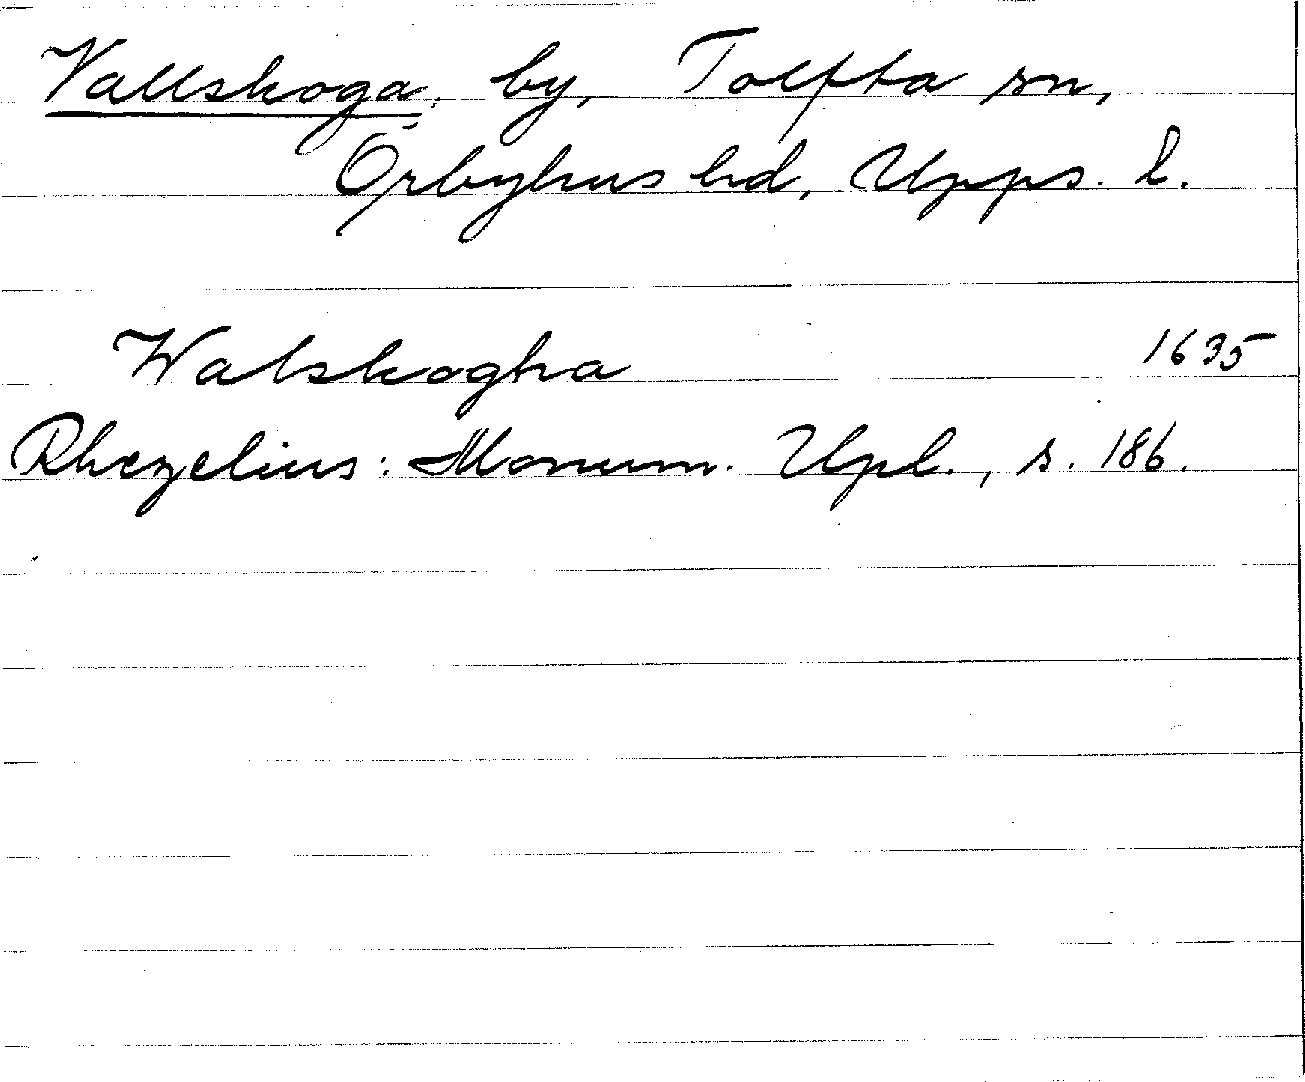 Vallskoga, by, Tolfta sn,
Örbyhus hd, Upps. l.
Walskogha 1635
Rhezelius: Monum. Upl., s. 186.